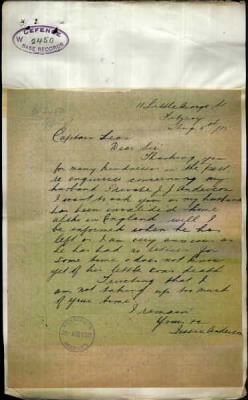 DEFENCE
2450
BASE RECORDS
11 Little George St
Fitzroy
Aug 5th
Captain Lean
Dear Sir
Thanking you
for many kindnesses in the past
re enquiries concerning my
husband Private J. J. Anderson
I want to ask you as my husband
has been invalided home
in England will I
be informed when he has
left as I am very anxious as
he has had no letters for
some time & does not know
yet of his little son's death
Trusting that I
am not taking up too much
of your time
I remain
Yours
Jessie Anderson